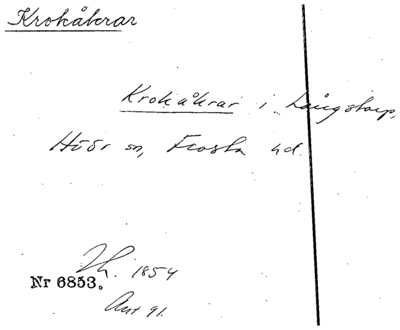 Krokåkrar
Krokåkrar i Långstorp,
Höör sn, Frosta hd.
Th. 1854
Nr 6853.
Ant 91.